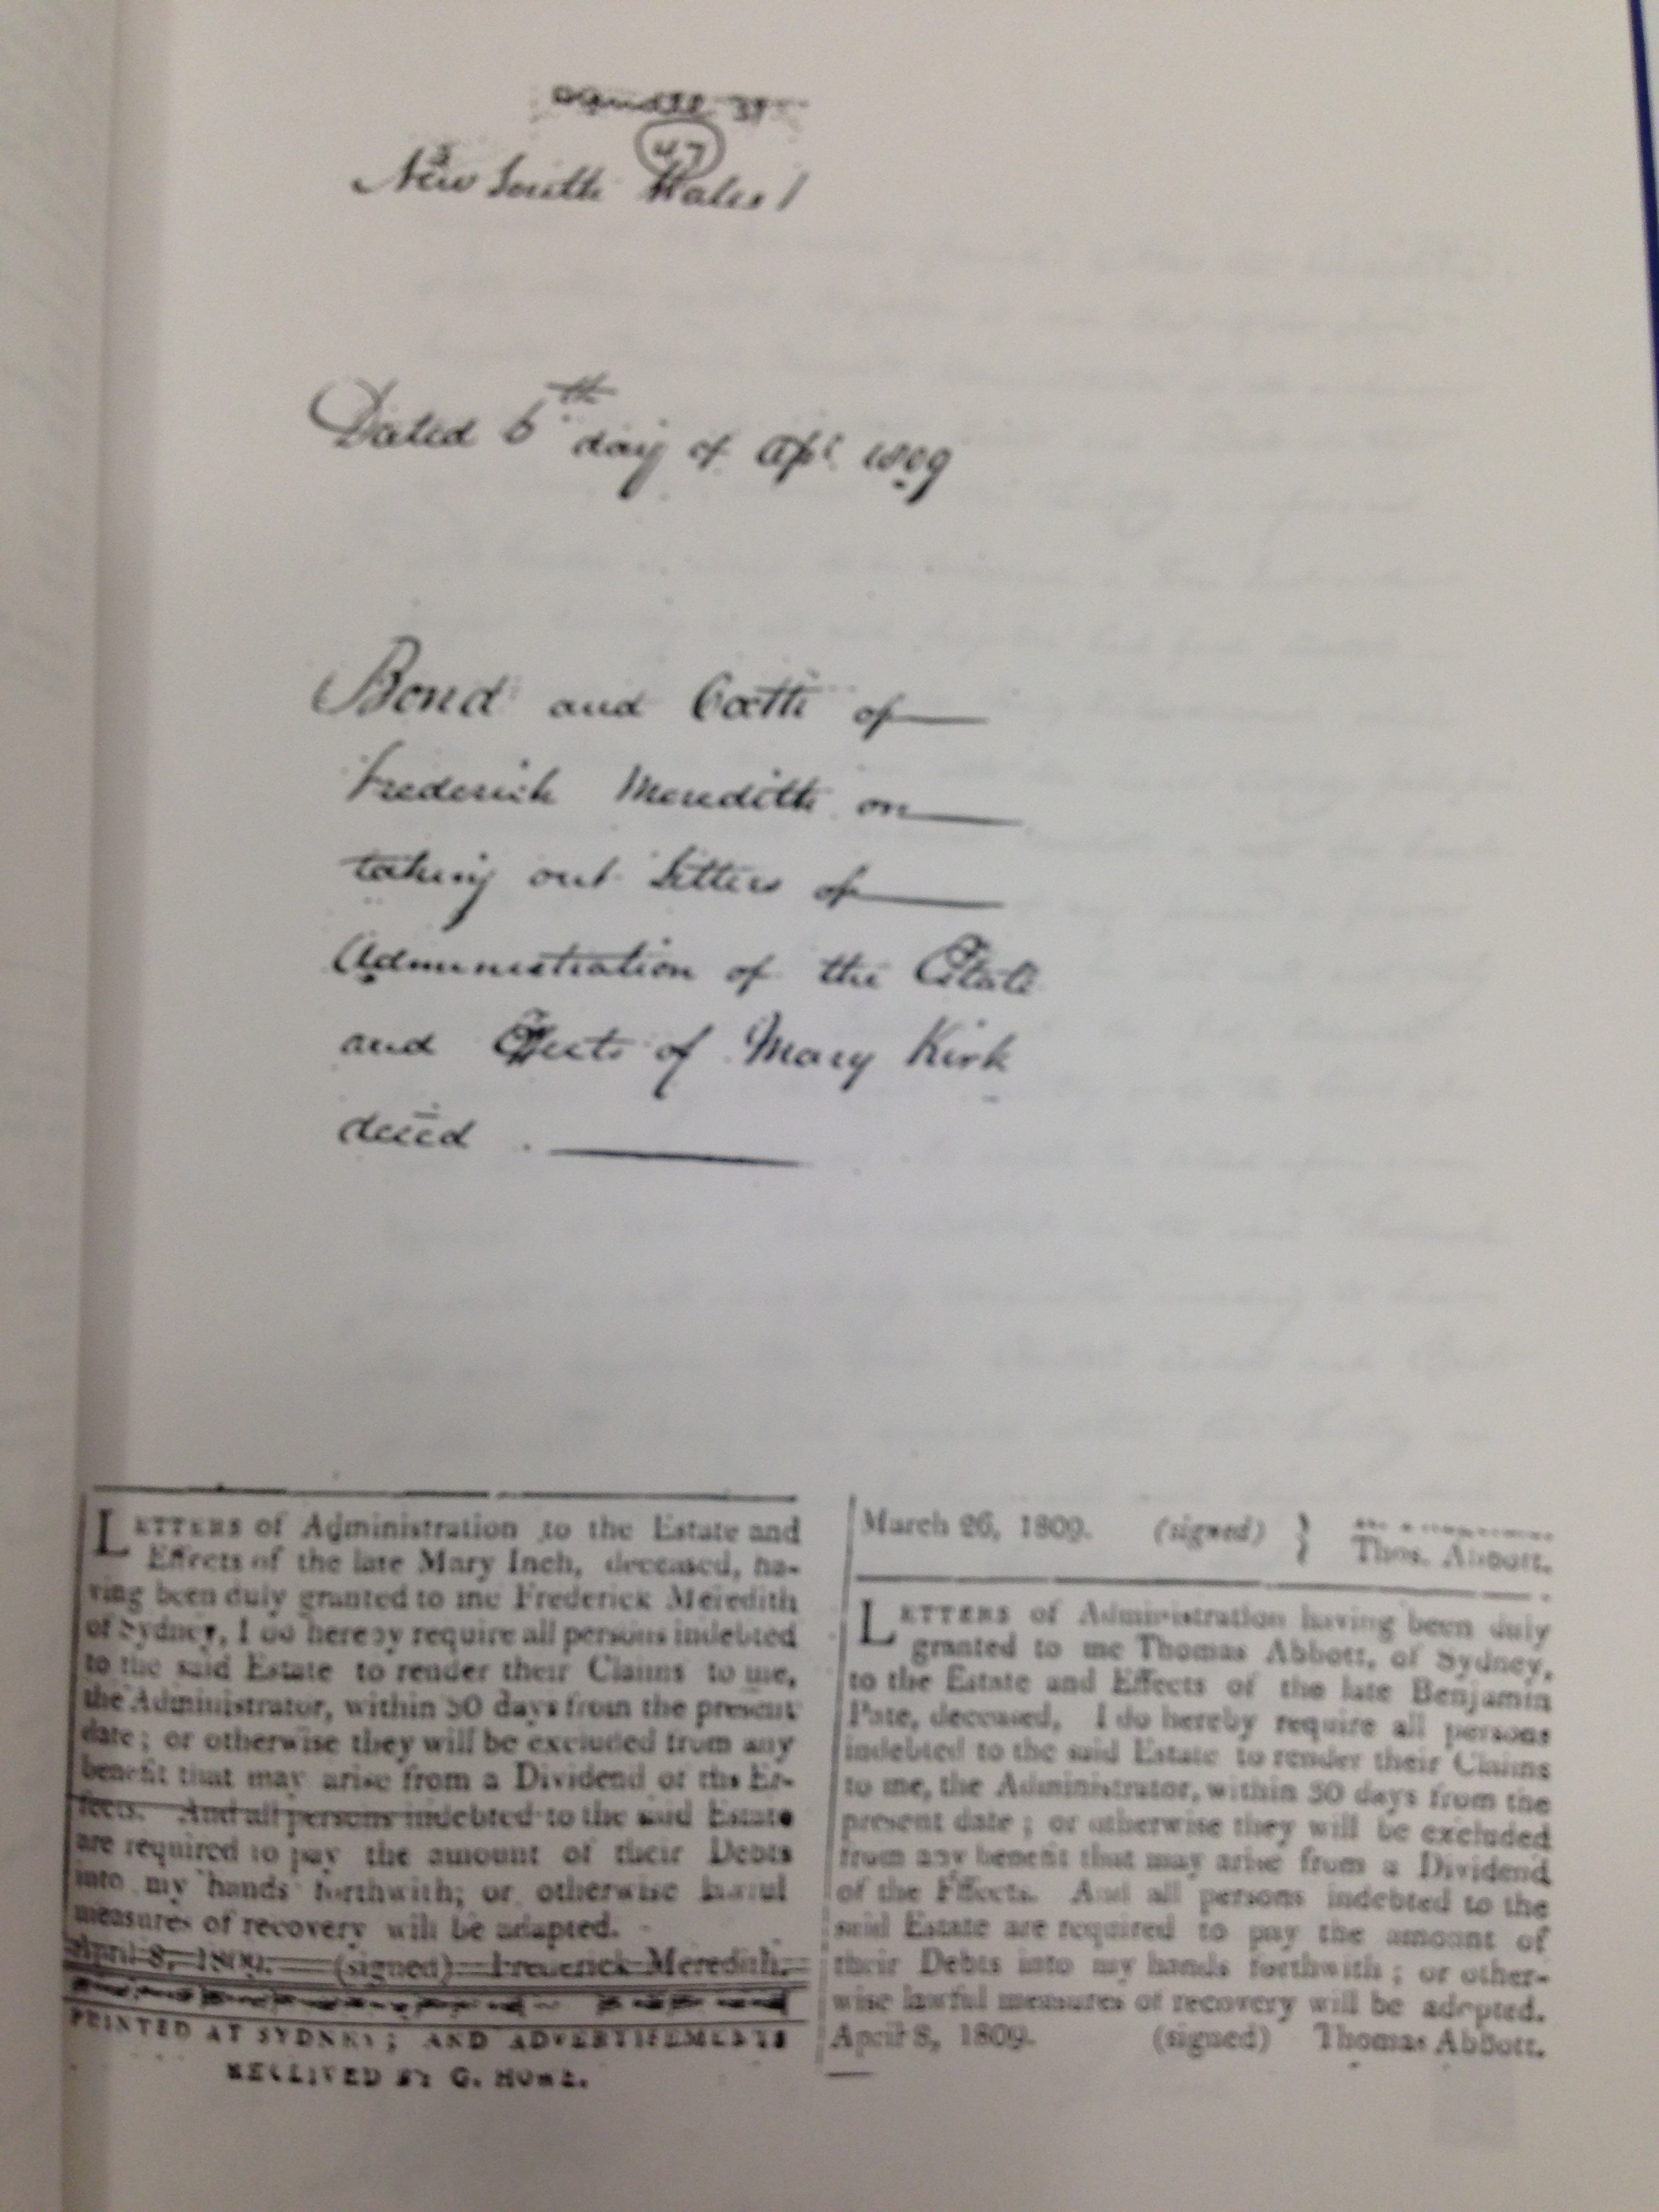 47
New South Wales /
Dated 6th day of Apl 1809
Bond and Oath of
Frederick Meredith on
taking out Letters of
Administration of the Estate
and Effects of Mary Kirk
deced.
LETTERS of Administration to the Estate and
Effects of the late Mary Inch, deceased, ha-
ving been duly granted to me Frederick Meredith
of Sydney, I do hereby require all persons indebted
to the said Estate to render their Claims to me,
the Administrator, within 30 days from the present
date; or otherwise they will be excluded from any
benefit that may arise from a Dividend of the Ef-
fects. And all persons indebted to the said Estate
are required to pay the amount of their Debts
into my hands forthwith; or otherwise lawful
measures of recovery will be adapted.
April 8, 1809. (signed) Frederick Meredith.
PRINTED AT SYDNEY; AND ADVERTISEMENTS
RECEIVED BY G. HOWE.
March 26, 1809. (signed) }
Thos. Abbott.
LETTERS of Administration having been duly
granted to me Thomas Abbott, of Sydney,
to the Estate and Effects of the late Benjamin
Pate, deceased, I do hereby require all persons
indebted to the said Estate to render their Claims
to me, the Administrator, within 30 days from the
present date; or otherwise they will be excluded
from any benefit that may arise from a Dividend
of the Effects. And all persons indebted to the
said Estate are required to pay the amount of
their Debts into my hands forthwith; or other-
wise lawful measures of recovery will be adopted.
April 8, 1809. (signed) Thomas Abbott.